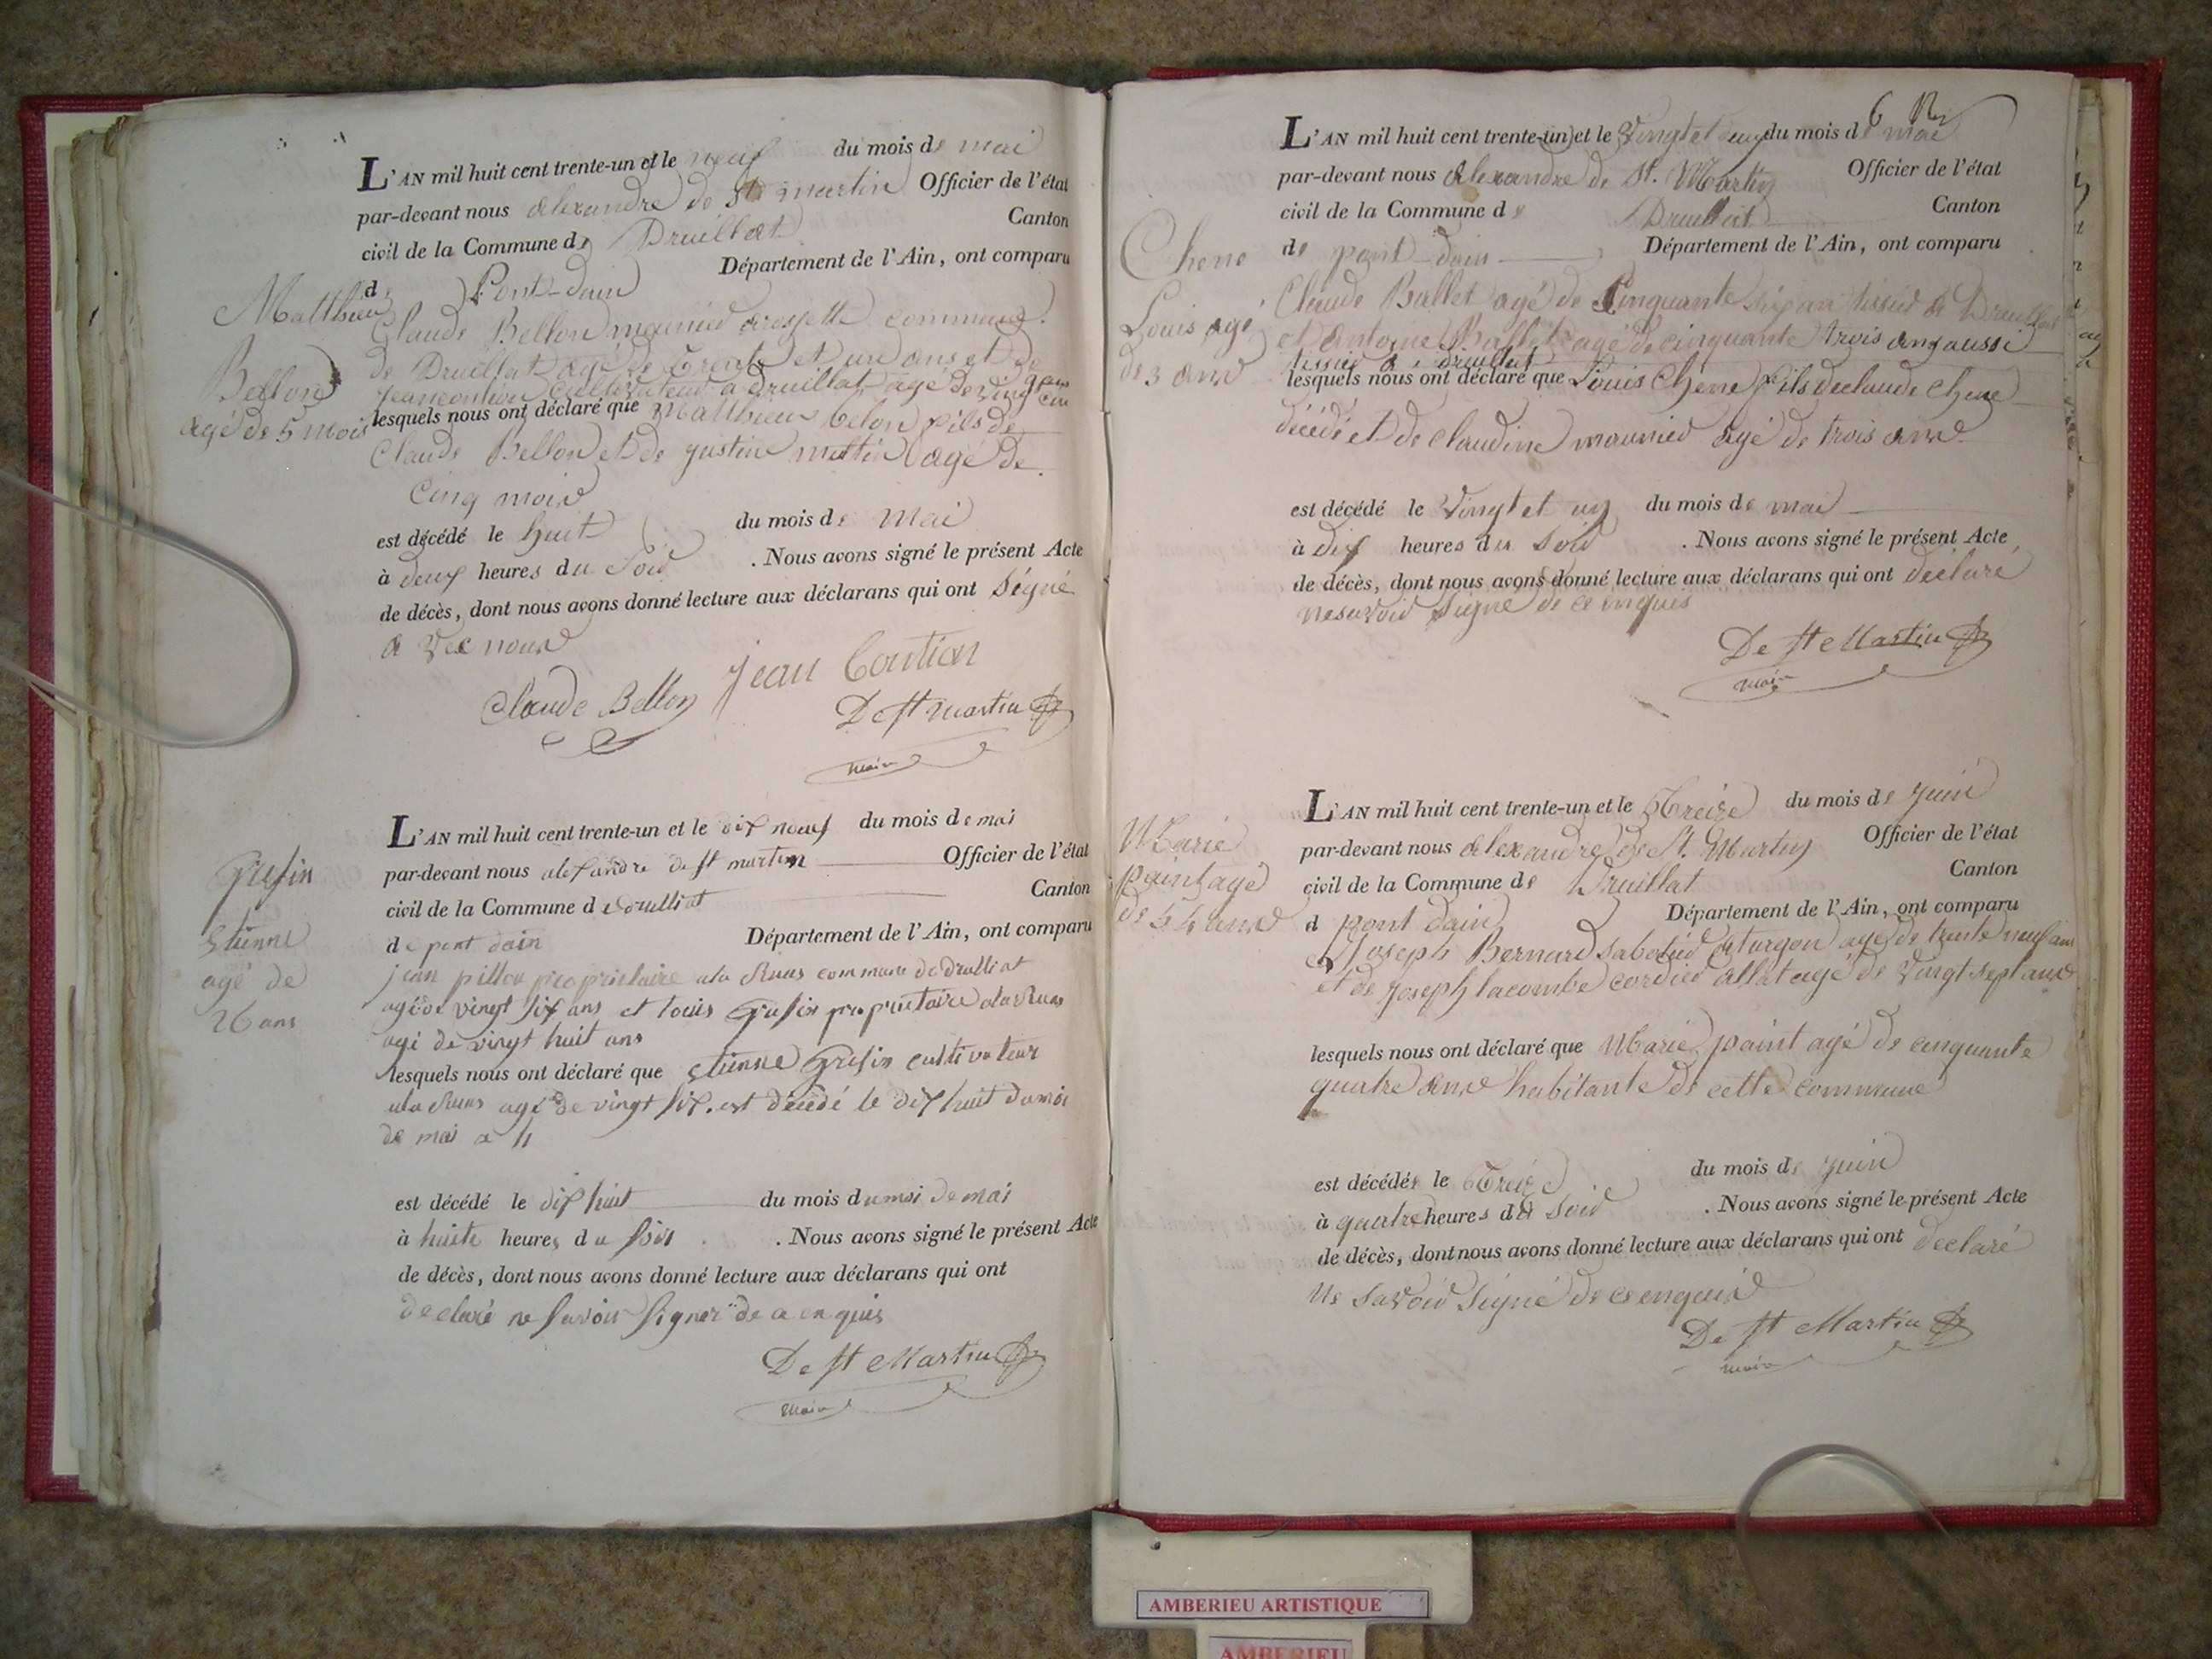 Matthieu
Bellon
agé de 5 mois
L'AN mil huit cent trente-un et le neuf du mois de mai
par-devant nous alexandre de St martin Officier de l'état
civil de la Commune de Druillat Canton
de Pont-dain Département de l'Ain, ont comparu
Claude Bellon meunier commune
de Druillat agé de trente et un ans et de
jean contion cultivateur a druillat agé de vingt cin
lesquels nous ont déclaré que Matthieu belon fils de
Claude Bellon et de justine agé de
Cinq mois
est décédé le huit du mois de Mai
à deux heures du Soir . Nous avons signé le présent Acte
de décès, dont nous avons donné lecture aux déclarans qui ont Signé
a vec nous
Claude Bellon Jean Contion
De st martin
maire
Grefin
Etienne
agé de
26 ans
L'AN mil huit cent trente-un et le dix neuf du mois de mai
par-devant nous alexandre de st martin Officier de l'état
civil de la Commune de Canton
de pont dain Département de l'Ain, ont comparu
jean pillon proprietaire a la Ruas commune de
agé de vingt six ans et louis Grefin proprietaire a la Ruas
agé de vingt huit ans
lesquels nous ont déclaré que Etienne Grefin cultivateur
a la Ruas agé de vingt six. est décédé le dix huit du moi
de mai a
est décédé le dix huit du mois du moi de mai
à huite heures du soir . Nous avons signé le présent Acte
de décès, dont nous avons donné lecture aux déclarans qui ont
declaré ne savoir signer de ce en quis
De st Martin
maire
6
Chene
Louis agé
de 3 ans
L'AN mil huit cent trente-un et le Vingt et deux du mois de mai
par-devant nous Alexandre de St. Martin Officier de l'état
civil de la Commune de Druillat Canton
de pont-dain Département de l'Ain, ont comparu
Claude Ballet agé de Cinquante six an tissier de Druillat
et antoine Ballet agé de cinquante trois ans aussi
tissier a druillat
lesquels nous ont déclaré que Louis Chêne fils de claude chene
décédé et de claudine meunier agé de trois ans
est décédé le Vingt et un du mois de mai
à dix heures du Soir . Nous avons signé le présent Acte
de décès, dont nous avons donné lecture aux déclarans qui ont declaré
ne savoir signé de ce enquis
De st Martin
maire
Marie
paint agé
de 54 ans
L'AN mil huit cent trente-un et le Treize du mois de juin
par-devant nous alexandre de St. Martin Officier de l'état
civil de la Commune de Druillat Canton
d pont dain Département de l'Ain, ont comparu
Joseph Bernard sabotier a turgon agé de trente neuf ans
et de joseph lacombe cordier agé de vingt sept ans
lesquels nous ont déclaré que Marie paint agé de cinquante
quatre ans habitante de cette commune
est décédée le Treize du mois de juin
à quatre heures du Soir . Nous avons signé le présent Acte
de décès, dont nous avons donné lecture aux déclarans qui ont declaré
Ne savoir signé de ce enquis
De st Martin
maire
AMBERIEU ARTISTIQUE
AMBERIEU